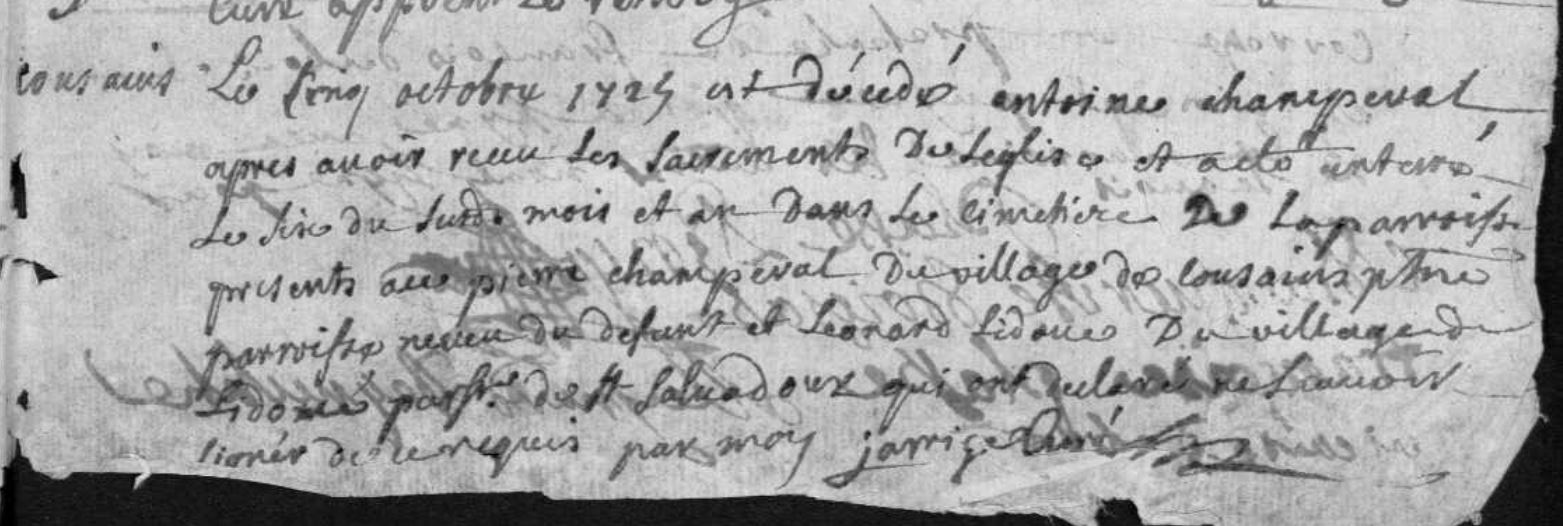 Curé
cousains Le Cinq octobre 1725 est décédé antoine champeval
apres avoir receu les sacrements De Leglise et a eté enterré
Le six du susd. mois et an Dans Le cimetiere De La parroisse
presents pierre champeval Du village de cousains
parroisse neveu du defunt et Leonard Lidove Du village de
Lidove parsse. de st salvadour qui ont declaré ne scavoir
signér de ce requis par moy jarrige Curé